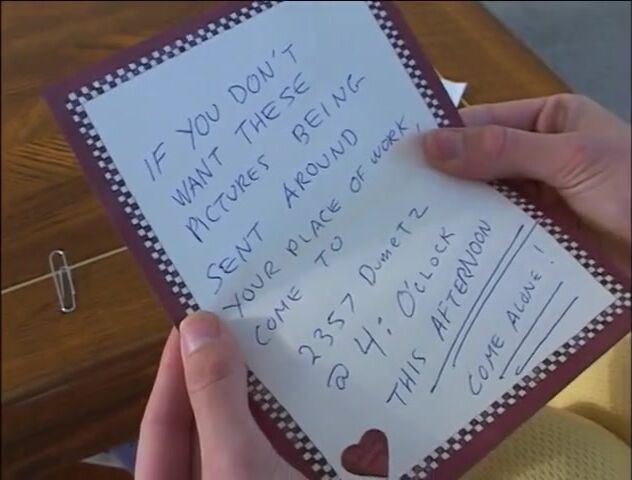 IF YOU DON'T
WANT THESE
PICTURES BEING
SENT AROUND
YOUR PLACE OF WORK,
COME TO
2357 DUMETZ
@ 4: O'CLOCK
THIS AFTERNOON
COME ALONE!